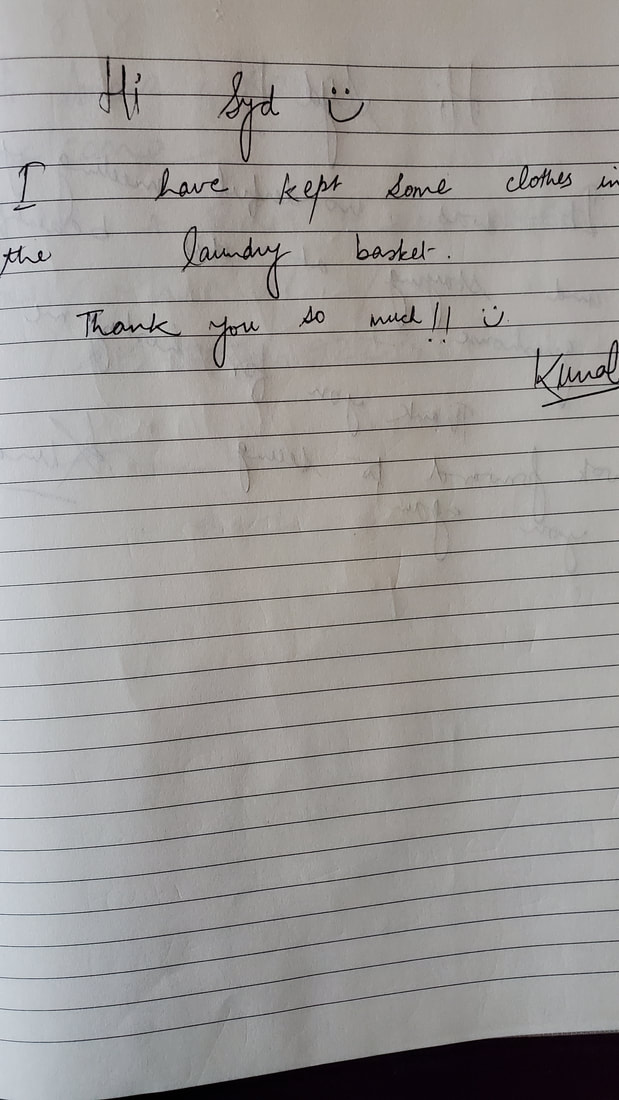 Hi Syd :)
I have kept some clothes in
the laundry basket.
Thank you so much!! :)
Kunal